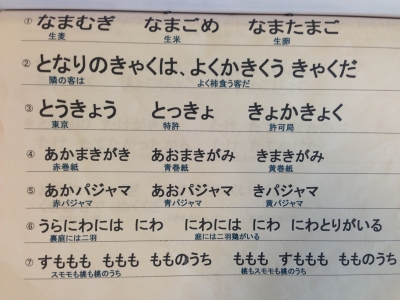 ① なまむぎ なまごめ なまたまご
生麦 生米 生卵
② となりのきゃくは、よくかきくう きゃくだ
隣の客は よく柿食う客だ
③ とうきょう とっきょ きょかきょく
東京 特許 許可局
④ あかまきがき あおまきがみ きまきがみ
赤巻紙 青巻紙 黄巻紙
⑤ あかパジャマ あおパジャマ きパジャマ
赤パジャマ 青パジャマ 黄パジャマ
⑥ うらにわには にわ にわには にわ にわとりがいる
裏庭には二羽 庭には二羽鶏がいる
⑦ すももも ももも もものうち ももも すももも もものうち
スモモも桃も桃のうち 桃もスモモも桃のうち